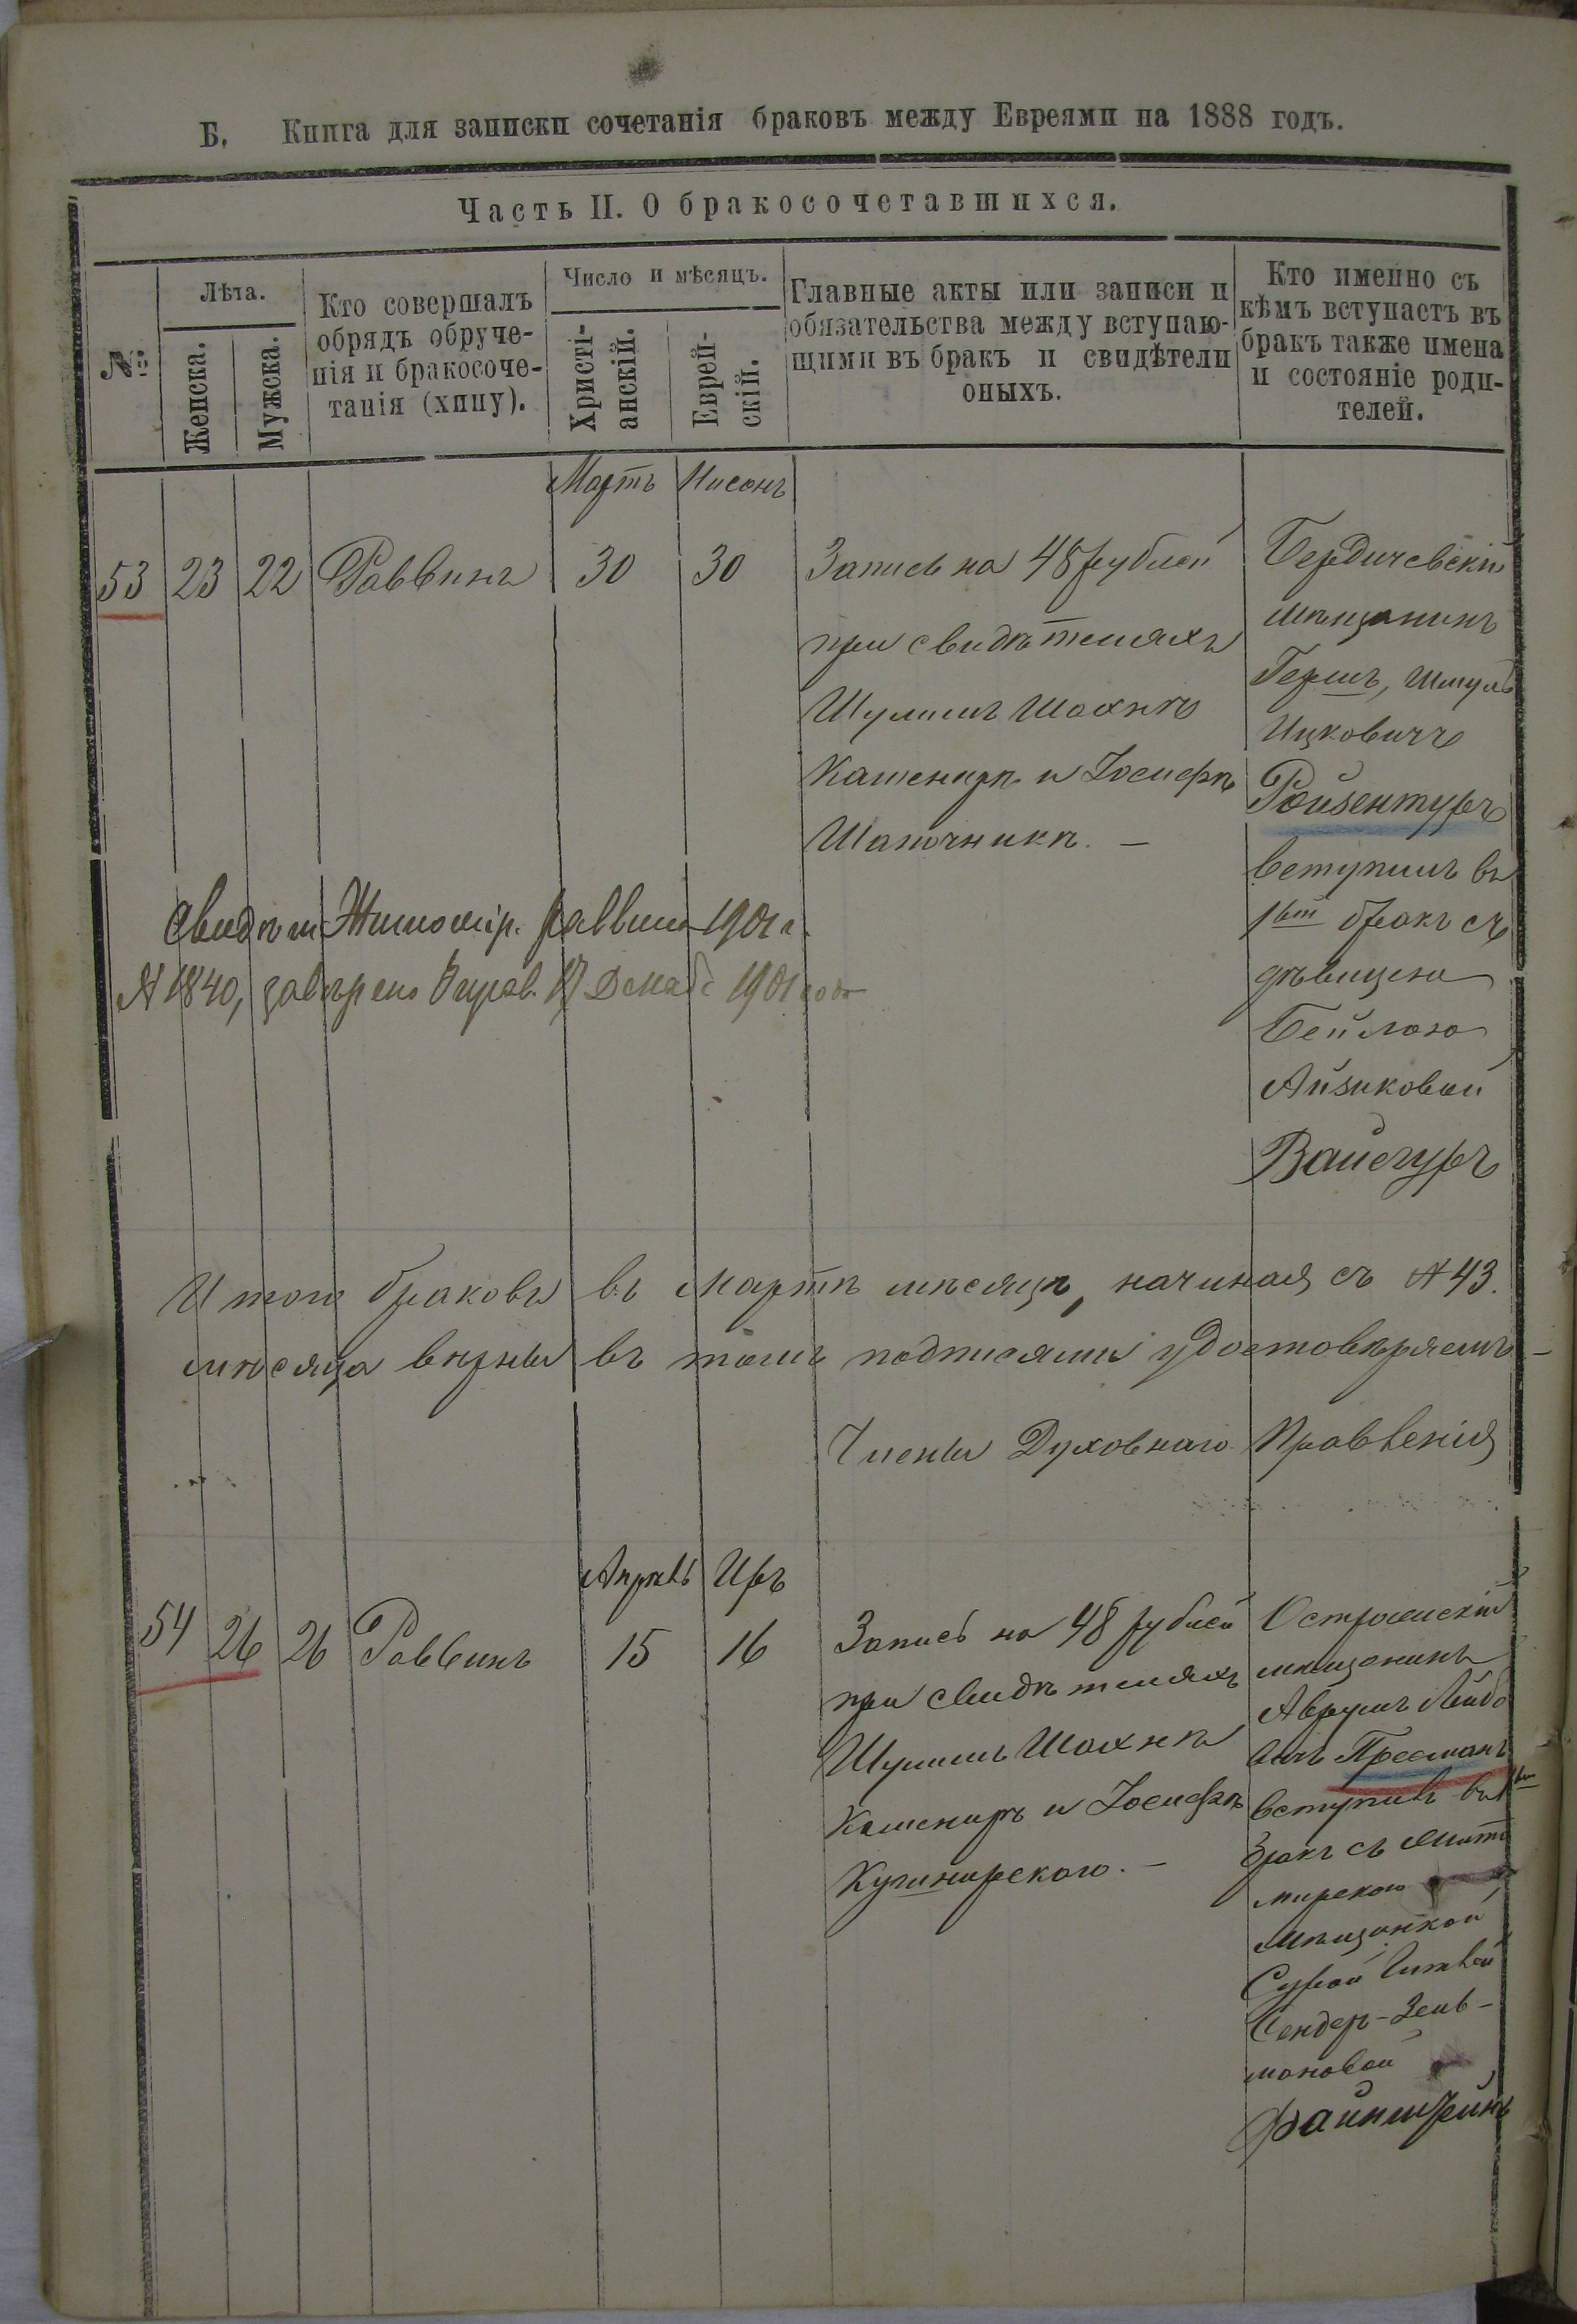 Б. Книга для записки сочетанія браковъ между Евреями на 1888 годъ.
Часть II. О бракосочетавшихся.
№
Лѣта.
Женска.
Мужска.
Кто совершалъ
обрядъ обруче-
нія и бракосоче-
танія (хипу).
Число и мѣсяцъ.
Христі-
анскій.
Еврей-
скій.
Главные акты или записи и
обязательства между вступаю-
щими въ бракъ и свидѣтели
оныхъ.
Кто именно съ
кѣмъ вступаетъ въ
бракъ также имена
и состояніе роди-
телей.
Мартъ Нисонъ
53 23 22 Раввинъ 30 30
Запись на 48 рублей
при свидѣтеляхъ
Шулимъ Шахнѣ
Кашенирѣ и Іосифѣ
Шапочникѣ. —
Бердичевскій
мѣщанинъ
Гершъ, Шмуль
Ицковичъ
Ройзентуръ
вступилъ въ
1вый бракъ съ
дѣвицею
Бейлою
Айзиковой
Вайсгуръ
Свидѣт Житомір. раввина 1901 г.
№ 1840, завѣрено 17 Декаб 1901 года
Итого браковъ въ Мартѣ мѣсяцѣ, начиная съ № 43.
мѣсяца вѣрны въ томъ подписями удостовѣряемъ —
Члены Духовнаго Правленія
Апрѣль Иръ
54 26 26 Раввинъ 15 16
Запись на 48 рублей
при свидѣтеляхъ
Шулимъ Шахнѣ
Кашениръ и Іосифѣ
Кушнирского. —
мѣщанинъ
Аврумъ Лейбо
вичъ Пресманъ
вступилъ въ 1вый
бракъ съ Жито
мирскою
мѣщанкой
Сурой
Сендеръ-Зель-
мановой
Файнштейнъ